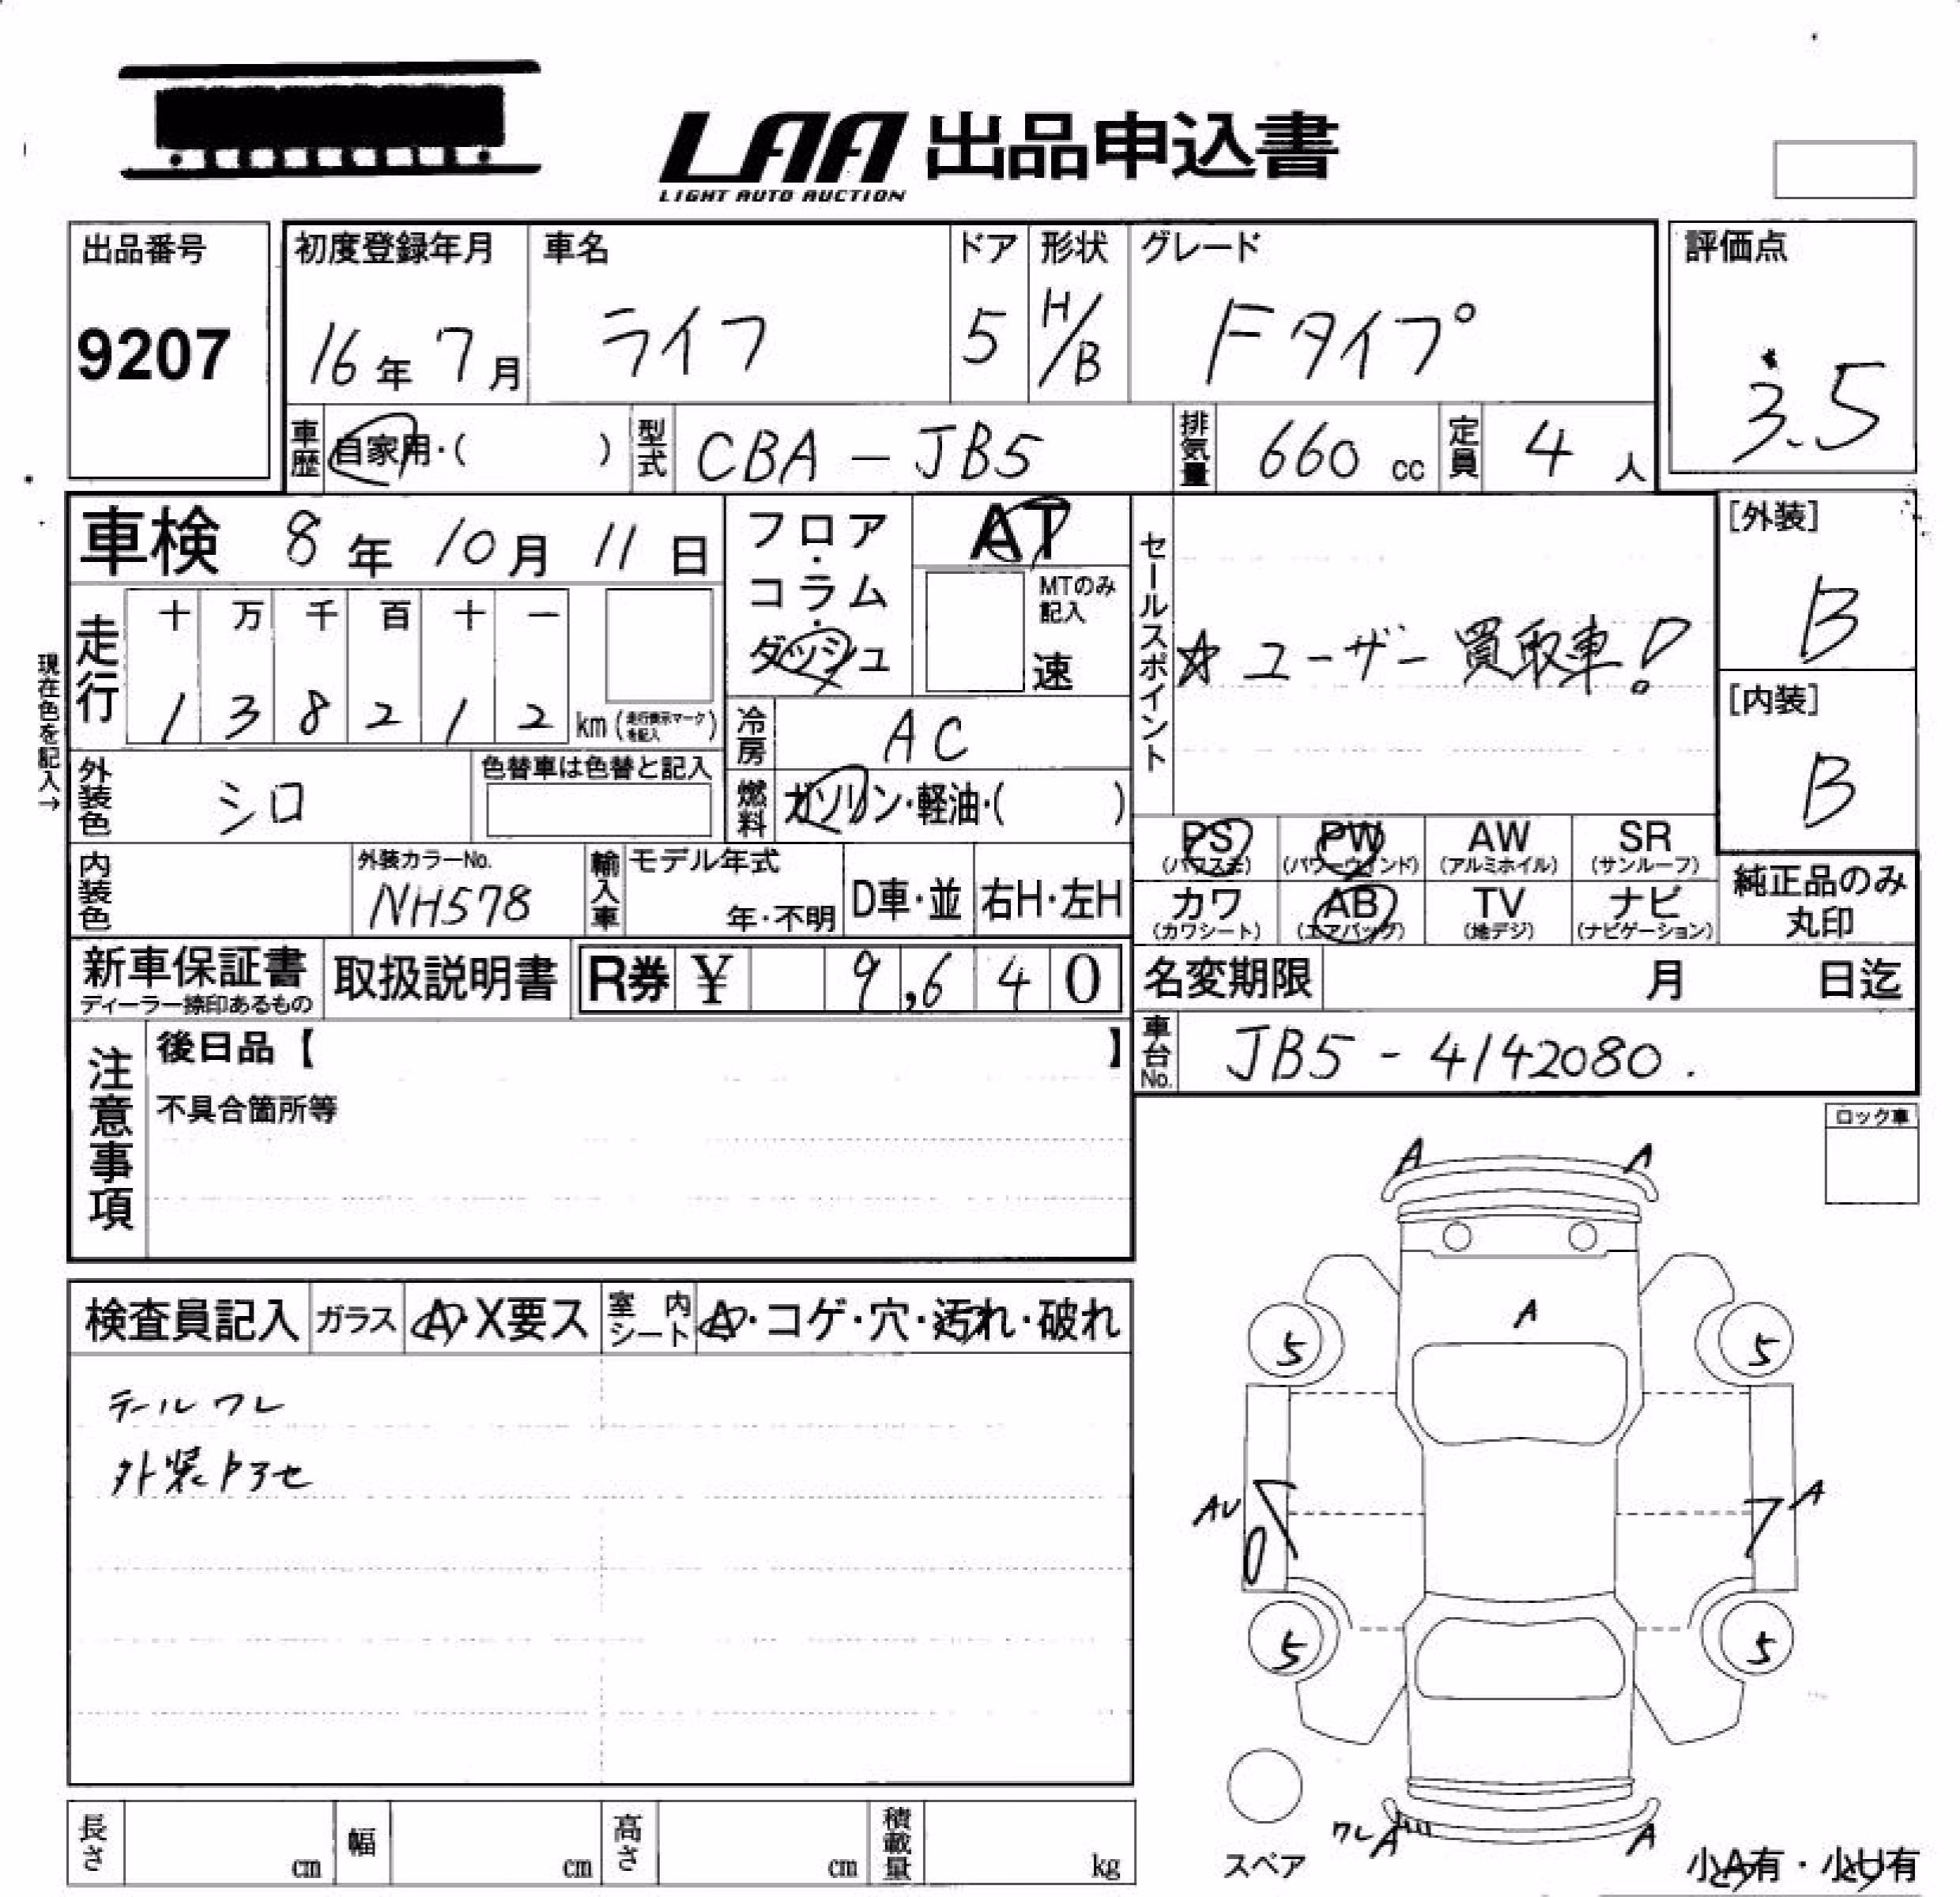 LAA 出品申込書
LIGHT AUTO AUCTION
出品番号
9207
初度登録年月
16年 7月
車名
ライフ
ドア
5
形状
H/B
グレード
Fタイプ
評価点
3.5
車歴
自家用・( )
型式
CBA-JB5
排気量
660 cc
定員
4 人
車検 8年 10月 11日
フロア・コラム・ダッシュ
AT
MTのみ記入
速
セールスポイント
☆ ユーザー買取車!
[外装]
B
[内装]
B
現在色を記入→
走行
十 万 千 百 十 一
1 3 8 2 1 2 km (走行表示マークを記入)
冷房
AC
外装色
シロ
色替車は色替と記入
燃料
ガソリン・軽油・( )
PS (パワステ)
PW (パワーウインド)
AW (アルミホイル)
SR (サンルーフ)
カワ (カワシート)
AB (エアバッグ)
TV (地デジ)
ナビ (ナビゲーション)
純正品のみ丸印
内装色
外装カラーNo.
NH578
輸入車
モデル年式
年・不明
D車・並
右H・左H
新車保証書
ディーラー捺印あるもの
取扱説明書
R券 ¥ 9,640
名変期限 月 日迄
車台No.
JB5-4142080.
注意事項
後日品【 】
不具合箇所等
ロック車
検査員記入
ガラス
A・X要ス
室内シート
A・コゲ・穴・汚れ・破れ
テールワレ
外装アセ
A A
A
5 5
AU A
5 5
ワレA A
スペア
小A有・小U有
長さ cm
幅 cm
高さ cm
積載量 kg